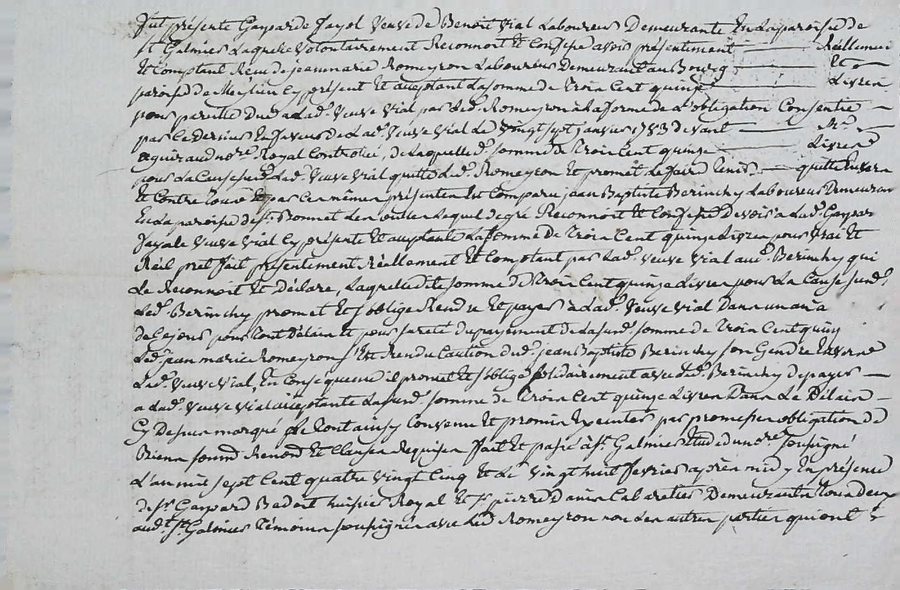 fut présente Gasparde fayol Veuve de Benoit Vial Laboureur Demeurante En La paroisse de
st Galmier Laquelle Volontairement Reconnoit Et Confesse avoir présentement Réellement
Et Comptant Reçu de jean marie Romeyron Laboureur Demeurant au Bourg Et
paroisse de Cy présent Et acceptant La somme de Trois Cent quinze Livres
pour perette Due a Lade. Veuve Vial par Led. Romeyron a La forme de L'obligation Consentie
par Ce Dernier En faveur de Lade. Veuve Vial Le Vingt sept janvier 1783 devant Me.
nore. Royal Controllée, De Laquelle de. somme de Trois Cent quinze Livres
pour La Cause Lade. Veuve Vial quitte Led. Romeyron Et promet Le faire Tenir quitte Envers
Et Contre Tous Et par Ces mêmes présentes Est Comparu jean Baptiste Berinchy Laboureur Demeurant
En La paroisse de st. Bonnet Les oulles Lequel de gré Reconnoit Et Confesse Devoir a Lade. Gaspar
fayole Veuve Vial Cy présente Et acceptante La somme De Trois Cent quinze Livres pour Vrai Et
Réel prêt fait présentement Réellement Et Comptant par Lade. Veuve Vial aud. Berinchy qui
Le Reconnoit Et Déclare, Laquelle dite somme de Trois Cent quinze Livres pour La Cause susd.
Led. Berinchy promet Et s'oblige Rendre Et payer a Lade. Veuve Vial Dans un an a
de Ce jour pour Tout Délai Et pour sureté du payement de La susd. somme de Trois Cent quinze
Led. jean marie Romeyron s'Est Rendu Caution dud. jean Baptiste Berinchy son Gendre Envers
Lade. Veuve Vial, En Consequence il promet Et s'oblige solidairement avec Led. Berinchy de payer
a Lade. Veuve Vial acceptante La susd. somme de Trois Cent quinze Livres Dans Le Délai
Cy Dessus marqué Le Tout ainsy Convenu Et promis par promesse obligation de
Biens soumd Renond Et Clauses Requises fait Et passé a st. Galmier Etude du nore. soussigné
L'an mil sept Cent quatre Vingt Cinq Et Le Vingt huit fevrier après midy En présence
de sr. Gaspard Badoit huissier Royal Et sr. pierre Cabaretier Demeurants Tous deux
audt. st. Galmier Témoins soussignés avec Led. Romeyron non Les autres parties qui ont